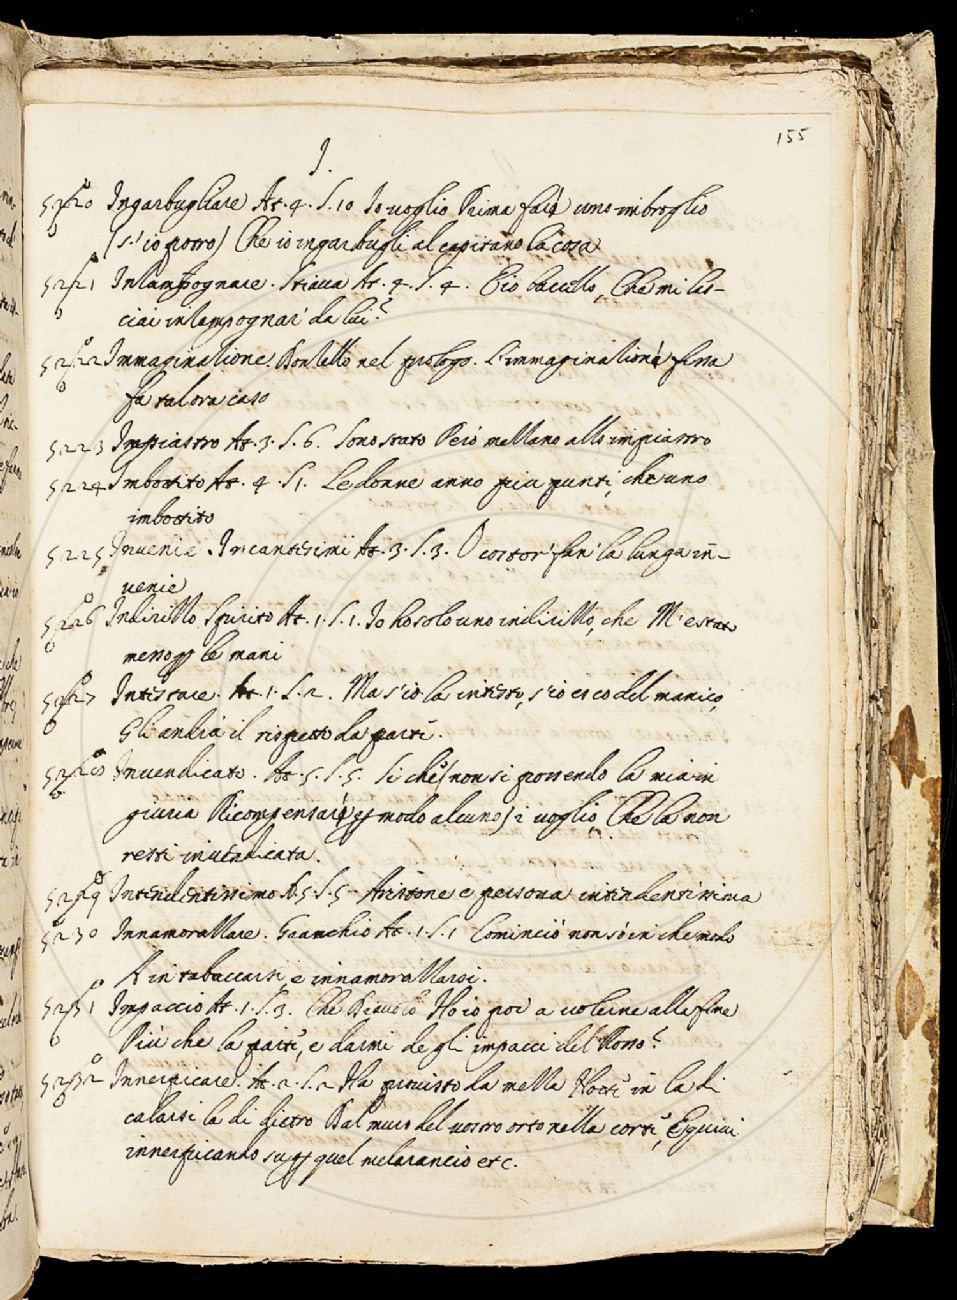 155
I.
5220 Ingarbugliare At. 4. S. 10 Io uoglio Prima fare uno imbroglio
(s'io potro) Che io ingarbugli al capitano la cosa
5221 Inlampognare. Stiaua At. 4. S. 4. Cio baccello, Che mi las-
ciai inlampognar' da lui?
5222 Immaginatione. Bontello nel prologo. L'immaginatione fissa
fa talora caso
5223 Impiastro At. 3. S. 6. Sono stato Però mezzano allo impiastro
5224 Imbottito At. 4. S 1. Le donne anno piu punti, che uno
imbottito
5225 Inuenie. Incantesimi At. 3. S. 3. O costor' fan' la lunga in-
uenie
5226 Indirizzo Spirito At. 1. S. 1. Io ho solo uno indirizzo, che M'è stato
messo per le mani
5227 Intestare. At. 1. S. 2. Ma s'io la intesto, s'io esco del manico,
Gli andrà il rispetto da parte.
5228 Inuendicato. At. 5. S. 5. Si che (non si possendo la mia in
giuria Ricompensare per modo alcuno) i uoglio, Che la non
resti inuendicata.
5229 Intendentissimo A. 5. S. 5 - Aristone e persona intendentissima
5230 Innamorazzare. Granchio At. 1. S. 1 Cominciò non so in che modo
A intabaccarsi, e innamorazzarsi.
5231 Impaccio At. 1. S. 3. Che Diauolo Ho io poi a uolerne alla fine
Più che la parte, e darmi degli impacci del Rosso?
5232 Innerpicare. At. 2. S. 2 Ha preuisto da mezza Notte in là di
calarsi la di dietro Dal muro del uostro orto nella corte, E quiui
innerpicando su per quel melarancio etc.